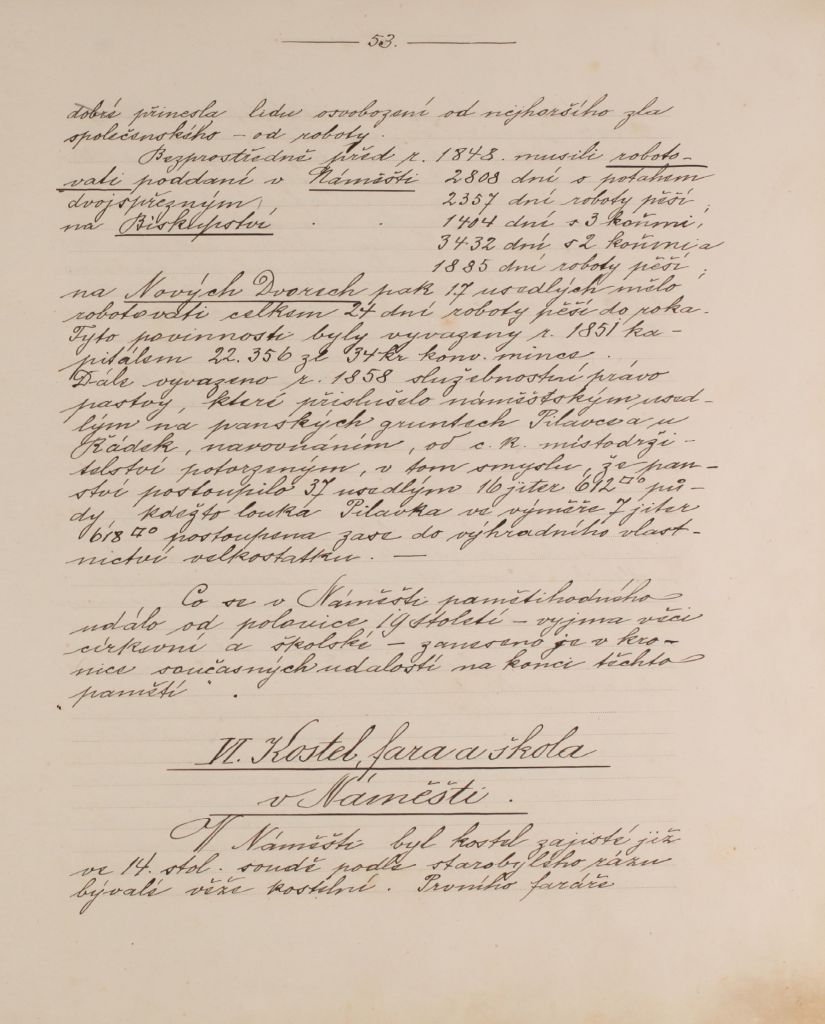 53.
dobré přinesla lidu osvobození od nejhoršího zla
společenského – od roboty.
Bezprostředně před r. 1848. musili roboto-
vati poddaní v Náměšti 2808 dní s potahem
dvojspřežným, 2357 dní roboty pěší,
na Biskupství . . 1404 dní s 3 koňmi,
3432 dní s 2 koňmi a
1885 dní roboty pěší;
na Nových Dvorech pak 17 usedlých mělo
robotovati celkem 24 dní roboty pěší do roka.
Tyto povinnosti byly vyvazeny r. 1851 ka-
pitálem 22.356 zl 34 kr konv. mince.
Dále vyvazeno r. 1858 služebnostní právo
pastvy, které příslušelo náměšťským used-
lým na panských gruntech Pilavce a u
Kádek, narovnáním, od c. k. místodrži-
telství potvrzeným, v tom smyslu, že pan-
ství postoupilo 37 usedlým 16 jiter 612 □° pů-
dy, kdežto louka Pilavka ve výměře 7 jiter
618 □° postoupena zase do výhradního vlast-
nictví velkostatku. —
Co se v Náměšti pamětihodného
událo od polovice 19 století – vyjma věci
církevní a školské – zaneseno je v kro-
nice současných událostí na konci těchto
„pamětí“.
VI. Kostel, fara a škola
v Náměšti.
V Náměšti byl kostel zajisté již
ve 14. stol. soudě podle starobylého rázu
bývalé věže kostelní. Prvního faráře